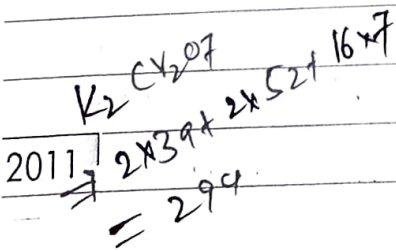 K2Cr2O7
2011 ⇒ 2×39+ 2×52+ 16×7
= 294